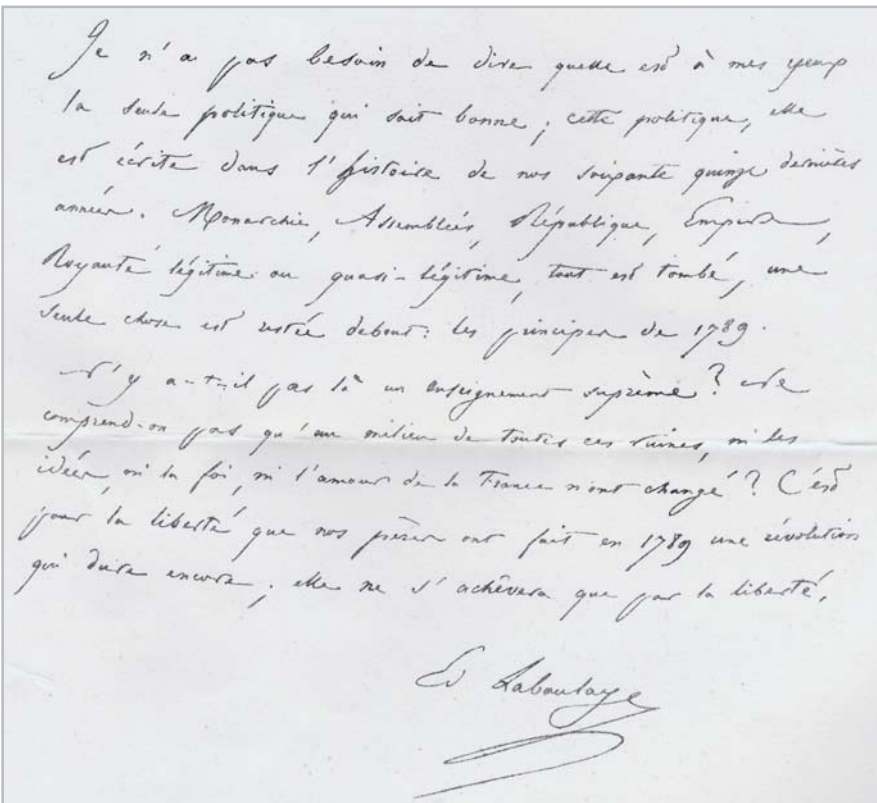 Je n'a pas besoin de dire quelle est à mes yeux
la seule politique qui soit bonne ; cette politique, elle
est écrite dans l'histoire de nos soixante quinze dernières
années. Monarchie, Assemblées, République, Empire,
Royauté légitime ou quasi-légitime, tout est tombé, une
seule chose est restée debout : les principes de 1789.
N'y a-t-il pas là un enseignement suprème ? Ne
comprend-on pas qu'au milieu de toutes ces ruines, ni les
idées, ni la foi, ni l'amour de la France n'ont changé ? C'est
pour la liberté que nos pères ont fait en 1789 une révolution
qui dure encore ; elle ne s'achêvera que par la liberté.
Ed Laboulaye